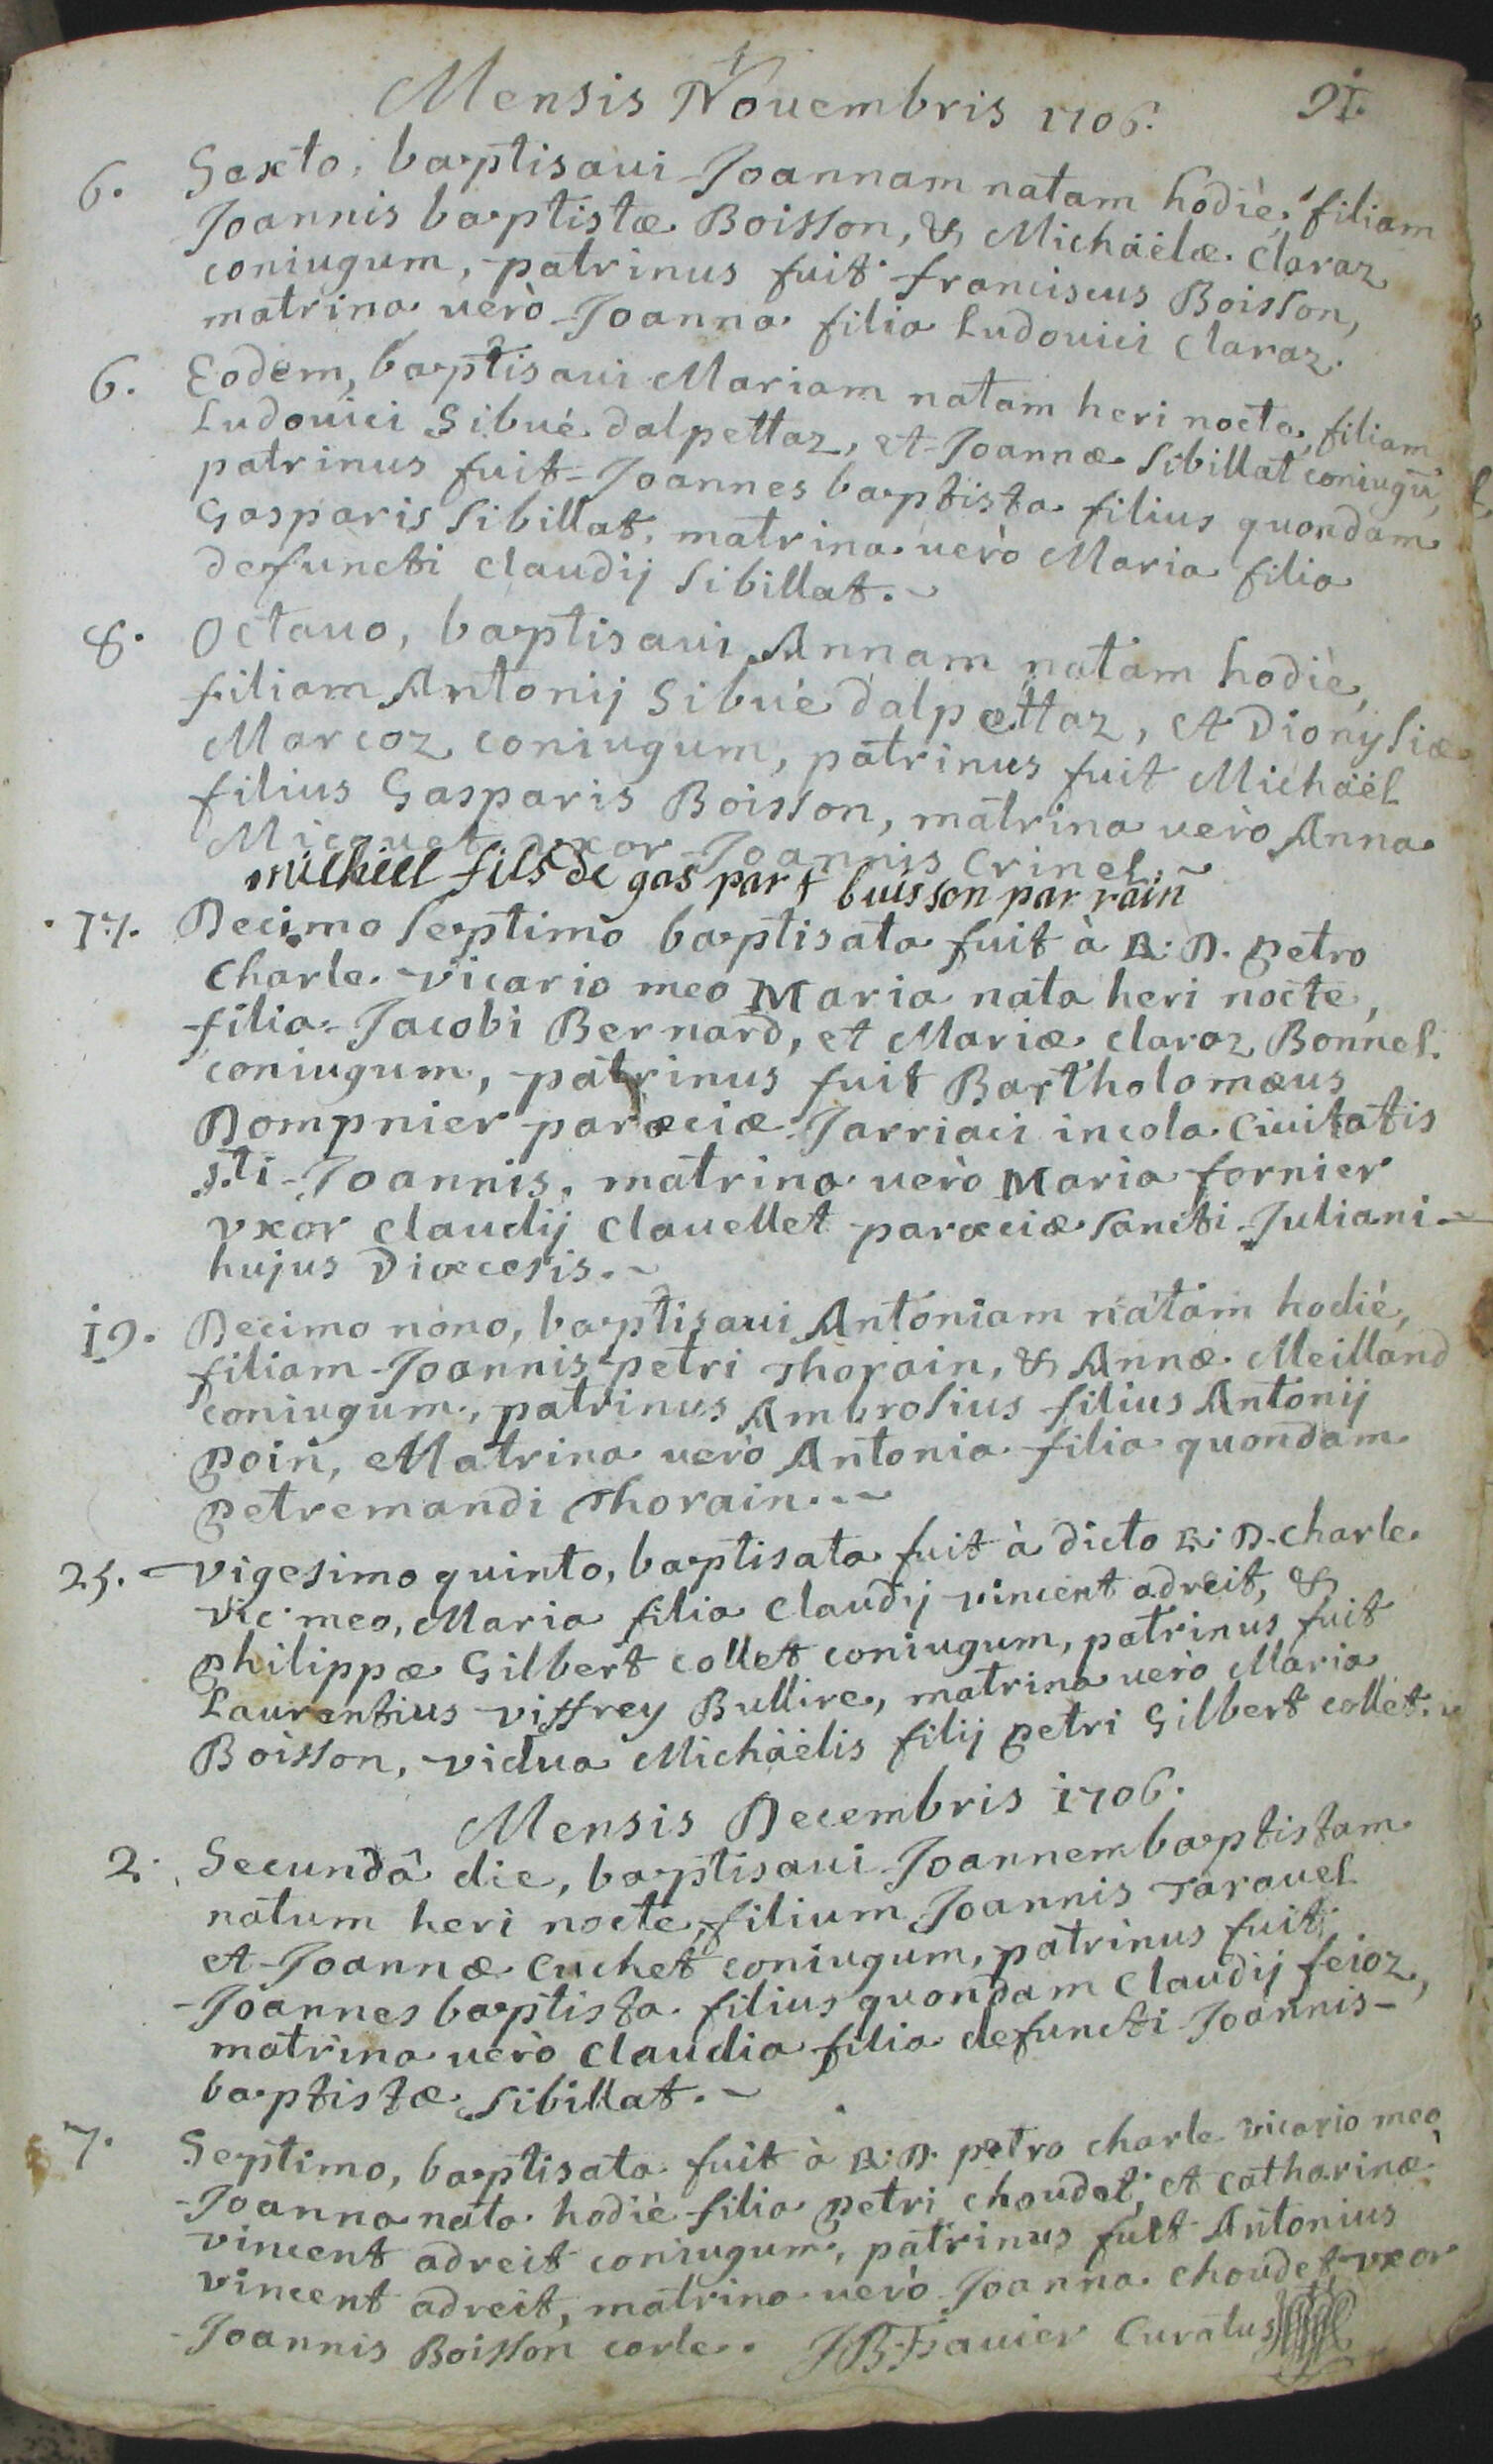 Mensis Novembris 1706. 91.
6. Sexto, baptisaui Joannam natam hodiè, filiam
Joannis baptistæ Boisson, & Michäelæ Claraz
coniugum, patrinus fuit franciscus Boisson,
matrina uerò Joanna filia Ludouici Claraz.
6. Eodem, baptisaui Mariam natam heri nocte, filiam
Ludouici Sibué dalpettaz, et Joannæ Sibillat coniugū,
patrinus fuit Joannes baptista filius quondam
Gasparis Sibillat, matrina uerò Maria filia
defuncti Claudij Sibillat.
8. Octauo, baptisaui Annam natam hodiè,
filiam Antonij Sibué dalpettaz, et Dionysiæ
Marcoz coniugum, patrinus fuit Michäel
filius Gasparis Boisson, matrina uerò Anna
Micquet uxor Joannis Crinel.
michiel fils de gaspart buisson parrain
17. Decimo septimo baptisata fuit à R: D. petro
Charle vicario meo Maria nata heri nocte,
filia Jacobi Bernard, et Mariæ claraz Bonnel
coniugum, patrinus fuit Bartholomæus
Dompnier paræciæ Jarriaci incola Ciuitatis
s.ti Joannis, matrina uerò Maria fornier
vxor claudij clauellet paræciæ sancti Juliani
hujus Diœcesis.
19. Decimo nono, baptisaui Antoniam natam hodiè,
filiam Joannis petri Thorain, & Annæ Meilland
coniugum, patrinus Ambrosius filius Antonij
poin, Matrina uerò Antonia filia quondam
petremandi Thorain.
25. Vigesimo quinto, baptisata fuit à dicto R: D. charle
vic: meo, Maria filia Claudij vincent adreit, &
philippæ Gilbert collet coniugum, patrinus fuit
Laurentius viffrey Bullire, matrina uerò Maria
Boisson, vidua Michäelis filij petri Gilbert collet.
Mensis Decembris 1706.
2. Secundâ die, baptisaui Joannem baptistam
natum heri nocte, filium Joannis Tarauel
et Joannæ Cuchet coniugum, patrinus fuit
Joannes baptista filius quondam Claudij feioz,
matrina uerò Claudia filia defuncti Joannis
baptistæ Sibillat.
7. Septimo, baptisata fuit à R: D. petro charle vicario meo
Joanna nata hodiè filia petri choudet, et catharinæ
vincent adreit coniugum, patrinus fuit Antonius
vincent adreit, matrina uerò Joanna choudet, vxor
Joannis Boisson corle. JB Fauier Curatus